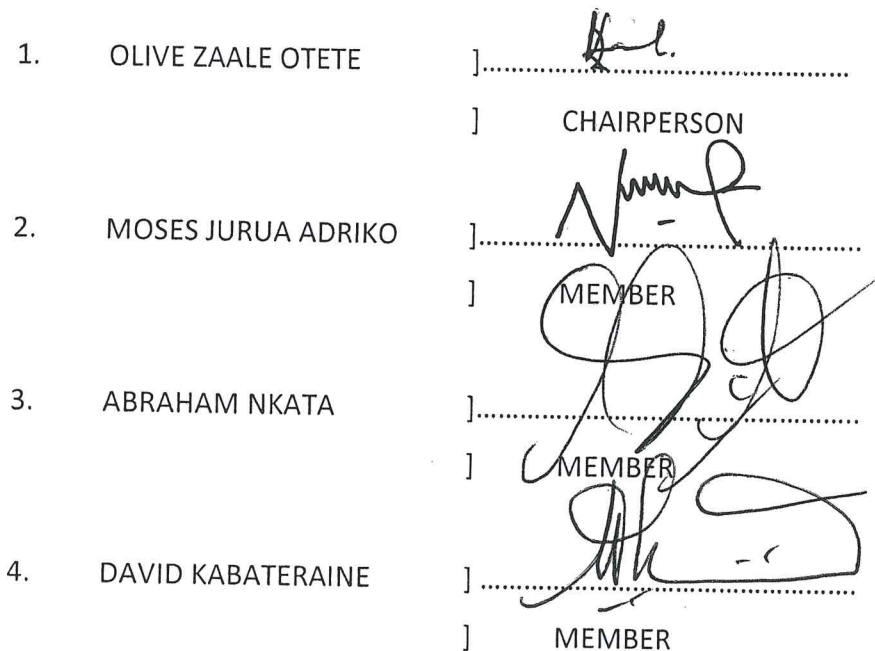 1. OLIVE ZAALE OTETE ].......................................................
] CHAIRPERSON
2. MOSES JURUA ADRIKO ].......................................................
] MEMBER
3. ABRAHAM NKATA ].......................................................
] MEMBER
4. DAVID KABATERAINE ].......................................................
] MEMBER